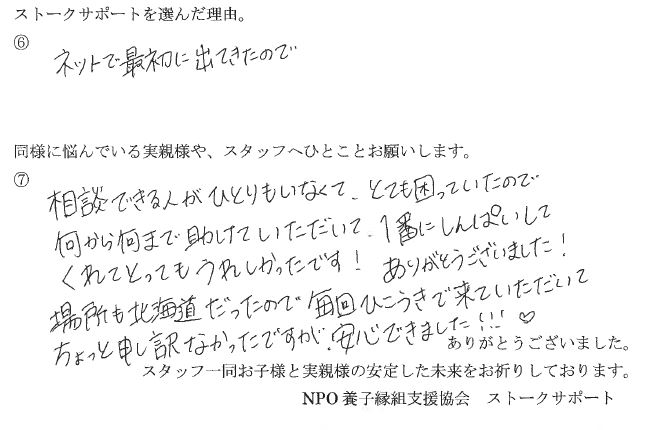 ストークサポートを選んだ理由。
⑥
ネットで最初に出てきたので
同様に悩んでいる実親様や、スタッフへひとことお願いします。
⑦
相談できる人がひとりもいなくて、とても困っていたので
何から何まで助けていただいて、1番にしんぱいして
くれてとってもうれしかったです! ありがとうございました!
場所も北海道だったので毎回ひこうきで来ていただいて
ちょっと申し訳なかったですが、安心できました!!! ♡
ありがとうございました。
スタッフ一同お子様と実親様の安定した未来をお祈りしております。
NPO 養子縁組支援協会 ストークサポート